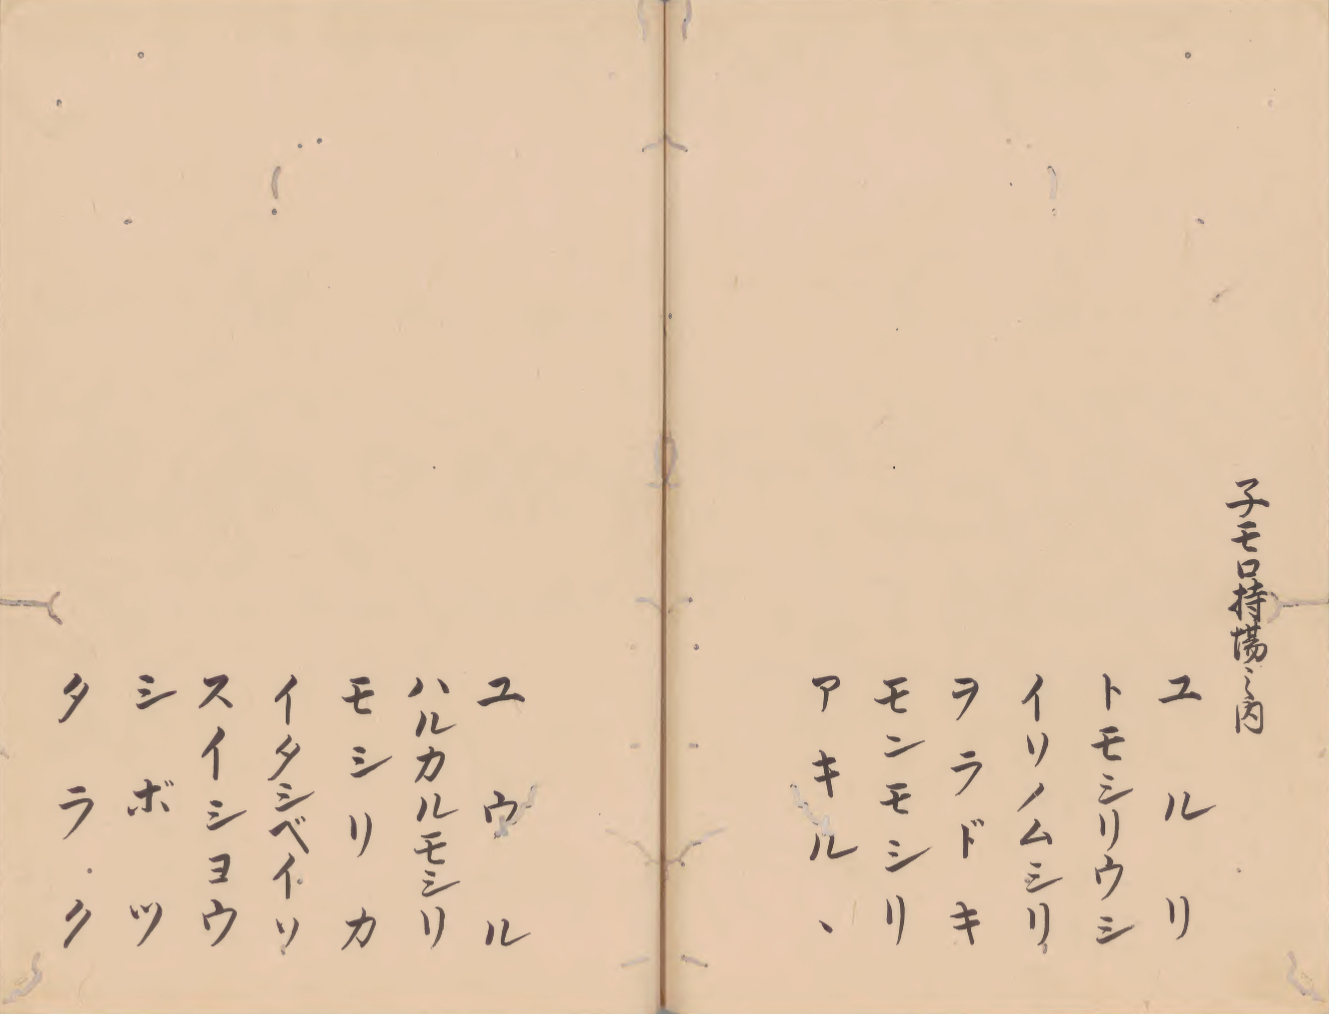 子モロ持場之内
ユルリ
トモシリウシ
イリノムシリ
ヲラドキ
モンモシリ
アキルヽ
ユウル
ハルカルモシリ
モシリカ
イタシベイソ
スイシヨウ
シボツ
タラク